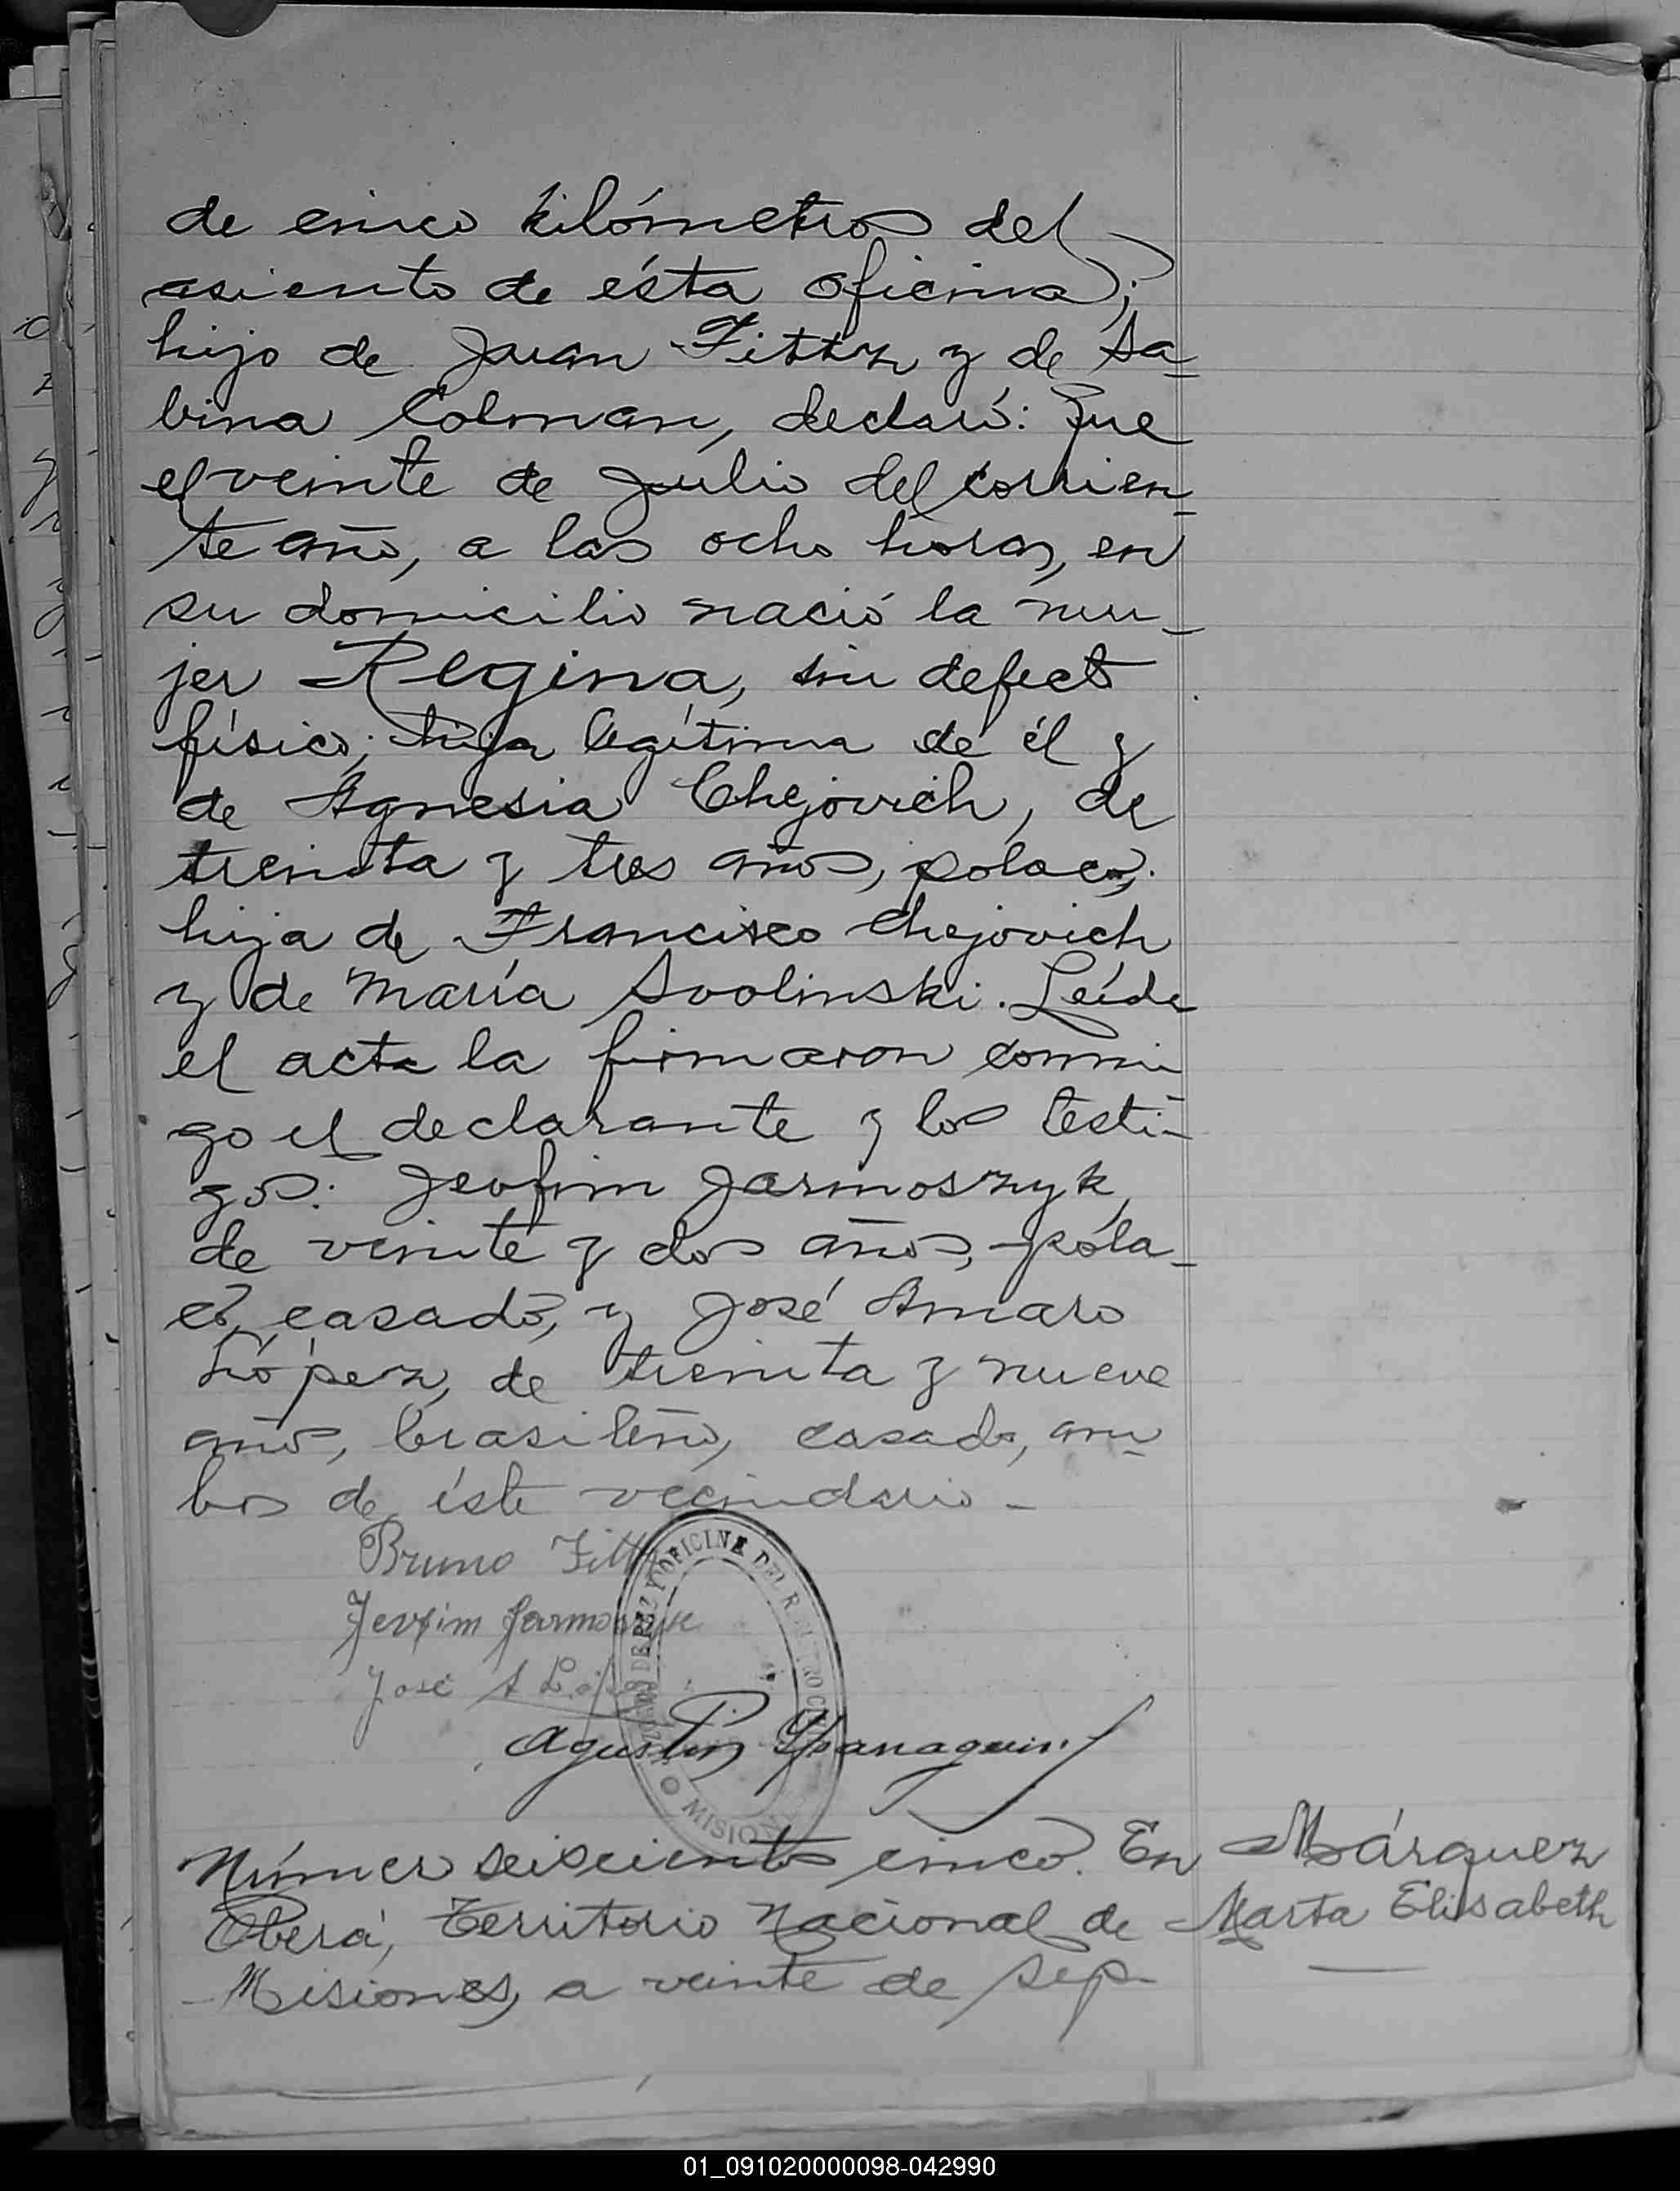 de cinco kilómetros del
asiento de ésta oficina;
hijo de Juan Fittz y de Sa-
bina Colman, declaró: Que
el veinte de Julio del corrien-
te año, a las ocho horas, en
su domicilio nació la mu-
jer Regina, sin defecto
físico; hija legítima de él y
de Agnesia Chejovich, de
treinta y tres años, polaca;
hija de Francisco Chejovich
y de María Svolinski. Leída
el acta la firmaron conmi
go el declarante y los testi-
gos: Jeofim Jarmoszyk,
de veinte y dos años, pola-
co, casado, y José Amaro
López, de treinta y nueve
años, brasileño, casado, am-
bos de éste vecindario -
Bruno Fittz
Jeofim Jarmoszyk
José A López
OFICINA DEL REGISTRO
MISIONES
Agustín
Número seiscientos cinco. En
Márquez
Oberá, Territorio Nacional de
Marta Elisabeth
Misiones, a veinte de Sep-
01_091020000098-042990